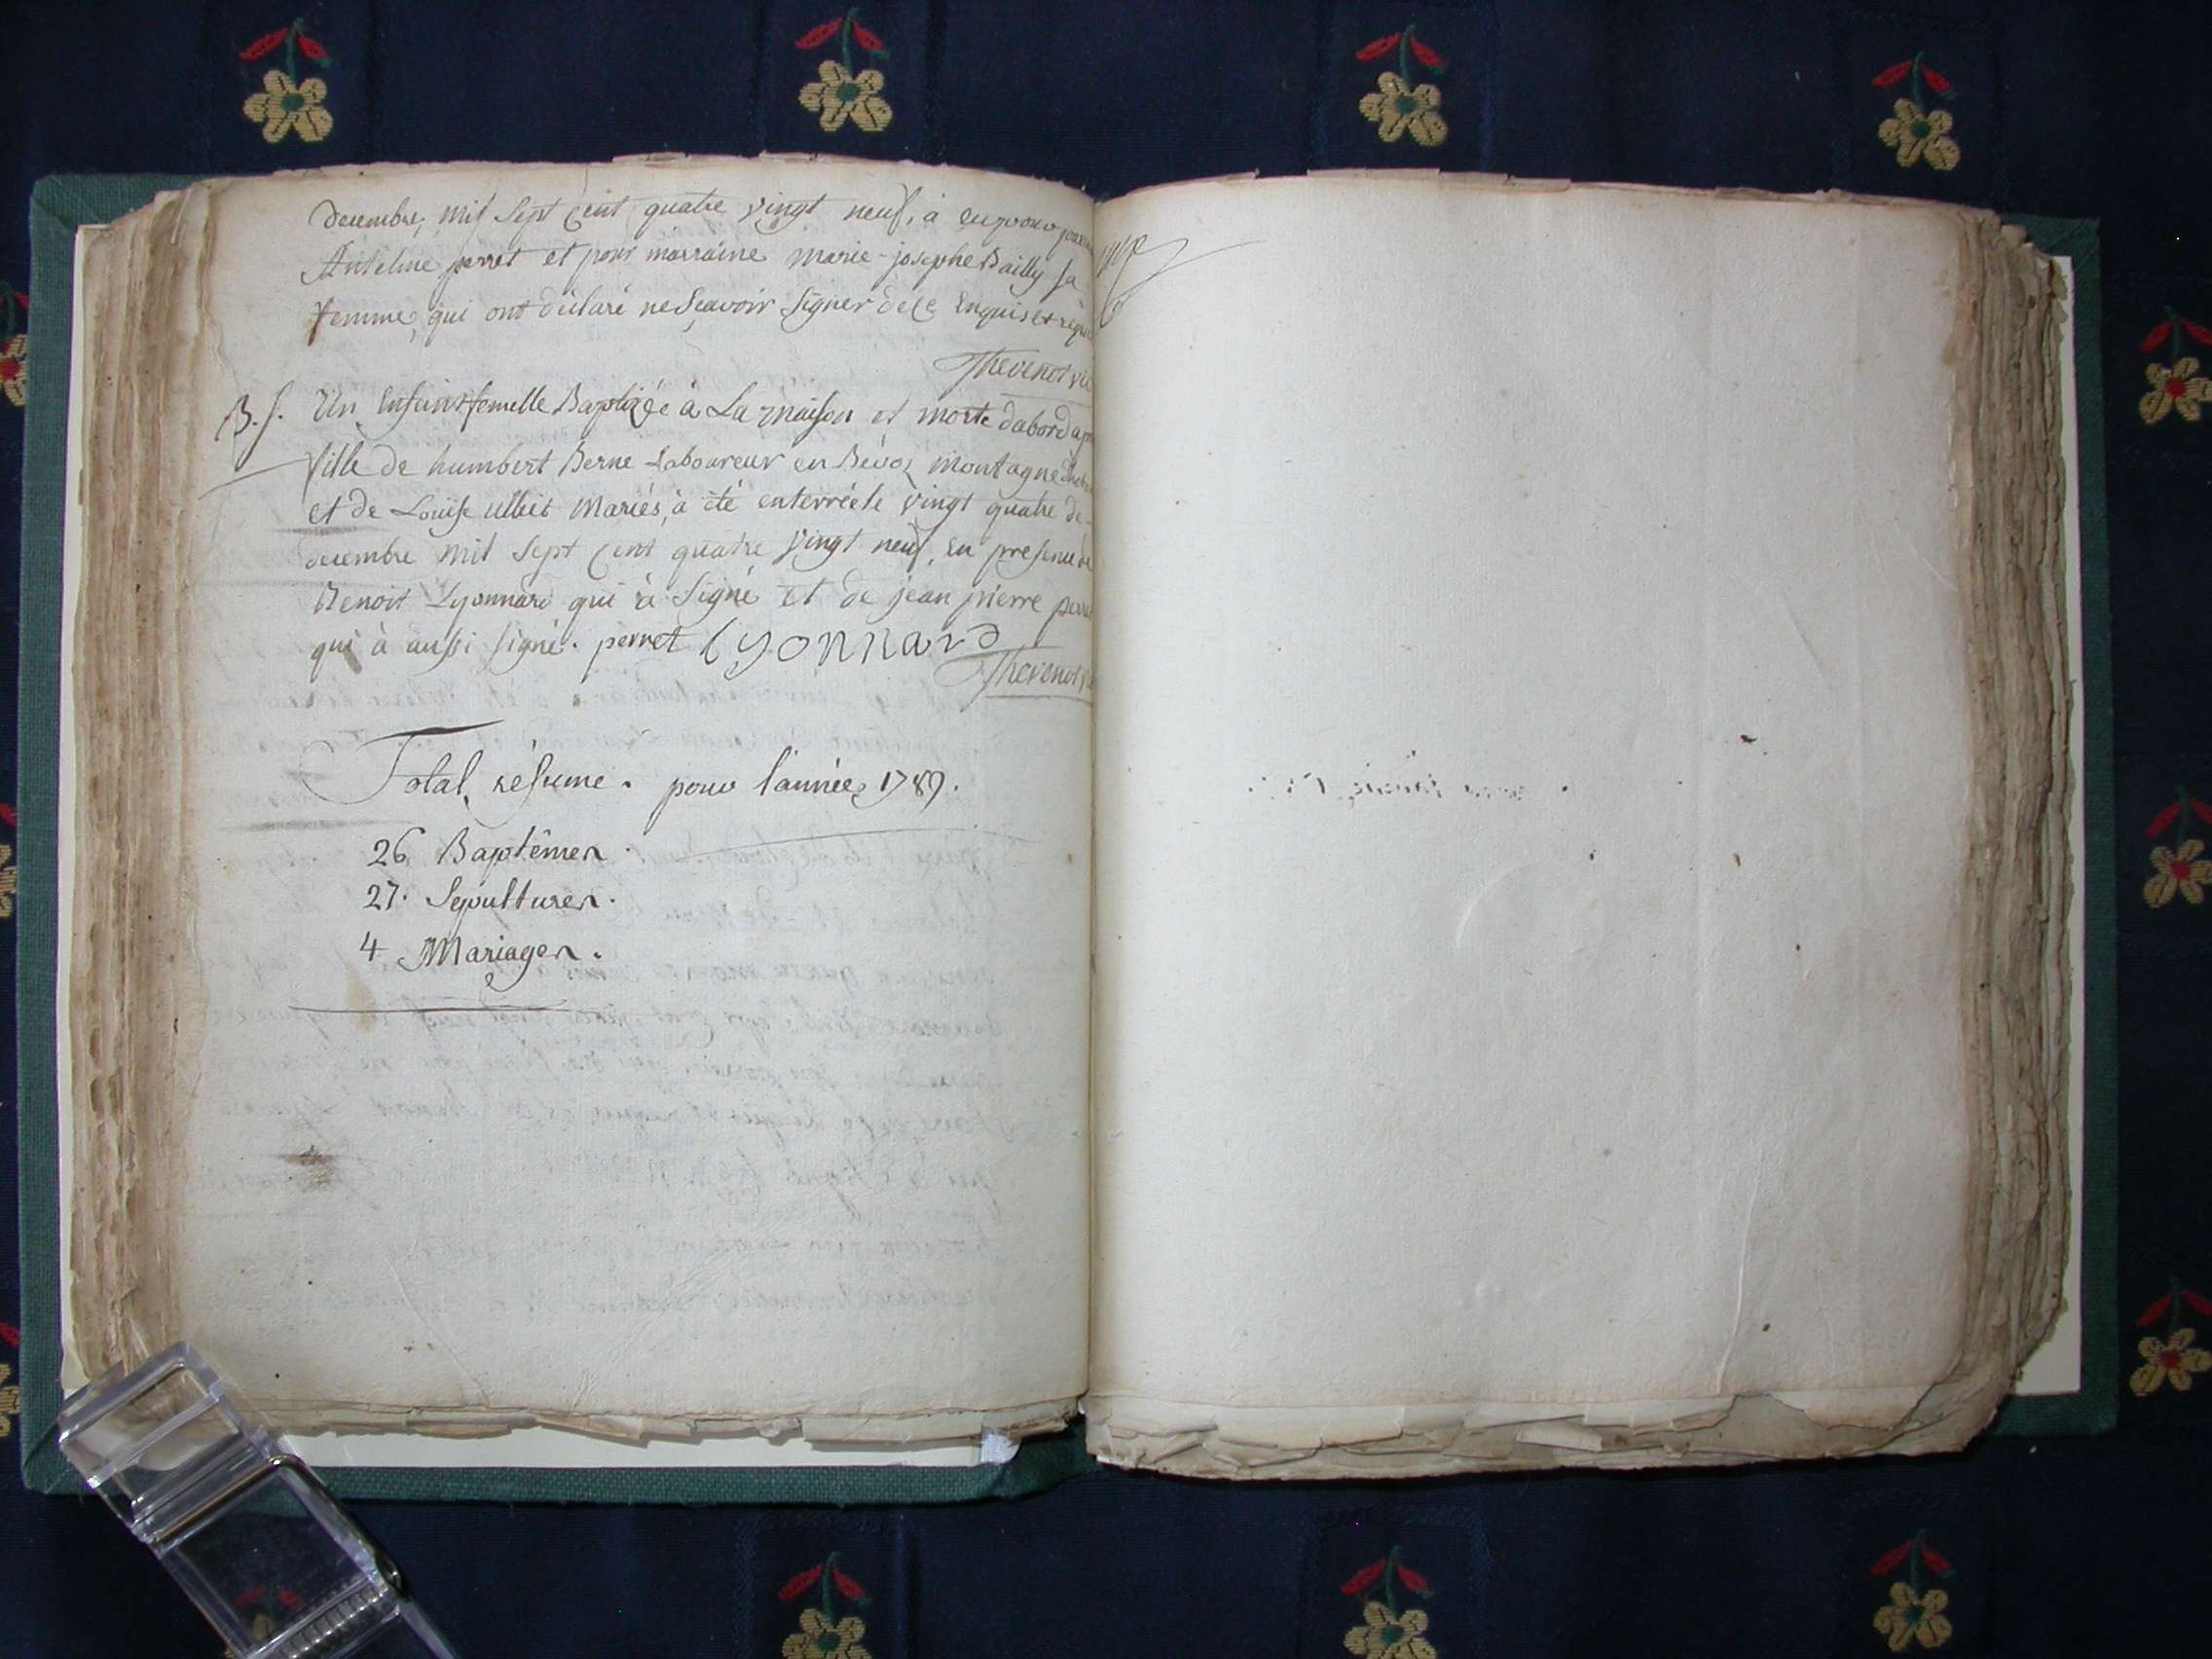 decembre, mil sept cent quatre vingt neuf, à eu pour
Antelme perret et pour marraine marie-josephe Bailly sa
femme, qui ont déclaré ne sçavoir signer de ce enquis et
Thevenot
B. S. Un enfant femelle Baptizée à La maison et morte dabord
fille de humbert Berne Laboureur en montagne
et de Louise Mariés, à été enterrée le vingt quatre de-
decembre mil sept cent quatre vingt neuf, en presence de
Benoit Lyonnard qui à signé et de jean pierre
qui à aussi signé. perret Lyonnard
Thevenot
Total résume. pour l'année 1789.
26 Baptêmes.
27. Sepultures.
4 Mariages.